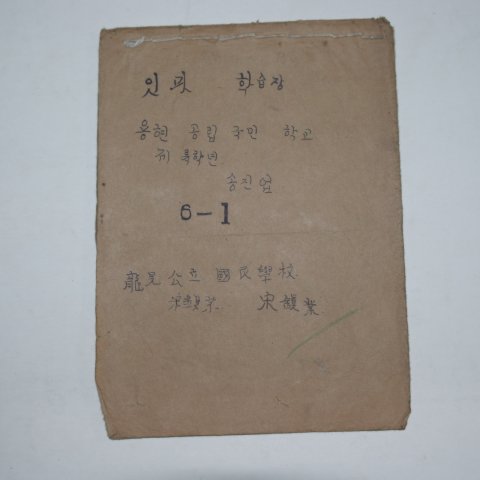 잇포 학습장
용현 공립 국민 학교
제 륙학년
송진업
6-1
龍見公立 國民學校
宋鎭業 宋護業